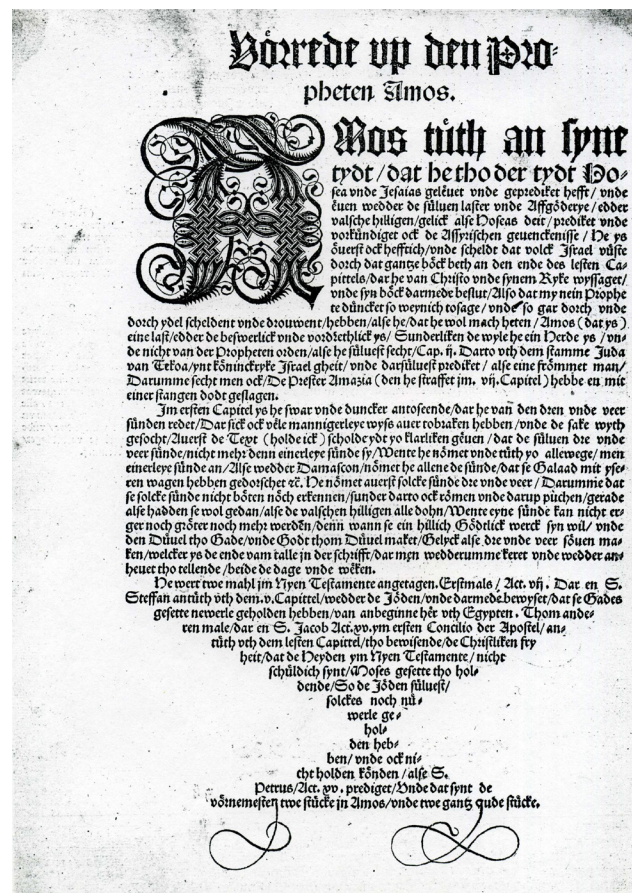 Vörrede vp den Pro-
pheten Amos.
AMos tüth an syne
tydt / dat he tho der tydt Ho-
sea vnde Jesaias gelëuet vnde geprediket hefft / vnde
ëuen wedder de süluen laster vnde Affgöderye / edder
valsche hilligen / gelick alse Hoseas deit / prediket vnde
vorkündiget ock de Assyrischen geuenckenisse / He ys
öuerst ock hefftich / vnde scheldt dat volck Israel vüste
dorch dat gantze böck beth an den ende des lesten Ca-
pittels / dar he van Christo vnde synem Ryke wyssaget /
vnde syn böck darmede beslut / Also dat my nein Prophe
te düncket so weynich tosage / vnde so gar dorch vnde
dorch ydel scheldent vnde drouwent / hebben / alse he / dat he wol mach heten / Amos (dat ys)
eine last / edder de beswerlick vnde vordrethlick ys / Sunderliken de wyle he ein Herde ys / vn-
de nicht van der Propheten orden / alse he süluest secht / Cap. ij. Darto vth dem stamme Juda
van Tekoa / ynt köninckryke Israel gheit / vnde darsüluest prediket / alse eine frömmet man /
Darumme secht men ock / De Prester Amazia (den he straffet jm. vij. Capitel) hebbe en mit
einer stangen dodt geslagen.
Im ersten Capitel ys he swar vnde duncker antoseende / dar he van den dren vnde veer
sünden redet / Dar sick ock vële mannigerleye wyss auer tobraken hebben / vnde de sake wyth
gesocht / Auerst de Text (holde ick) scholde ydt yo klarliken gëuen / dat de süluen dre vnde
veer sünde / nicht mehr denn einerleye sünde sy / Wente he nömet vnde tüth yo allewege / men
einerleye sünde an / Alse wedder Damascon / nömet he allene de sünde / dat se Galaad mit yse-
ren wagen hebben gedorschet etc. He nömet auerst solcke sünde dre vnde veer / Darumme dat
se solcke sünde nicht böten nöch erkennen / sunder darto ock römen vnde darup püchen / gerade
alse hadden se wol gedan / alse de valschen hilligen alle dohn / Wente eyne sünde kan nicht er-
ger noch gröter noch mehr werden / denn wann se ein hillich Gödtlick werck syn wil / vnde
den Düuel tho Gade / vnde Godt thom Düuel maket / Gelyck alse dre vnde veer söuen ma-
ken / welcker ys de ende vam talle jn der schrifft / dar men wedderumme keret vnde wedder an-
heuet tho tellende / beide de dage vnde wëken.
He wert twe mahl jm Nyen Testamente angetagen. Erstmals / Act. vij. Dar en S.
Steffan antüth vth dem .v. Capittel / wedder de Jöden / vnde darmede bewyset / dat se Gades
gesette newerle geholden hebben / van anbeginne hër vth Egypten. Thom ande-
ren male / dar en S. Jacob Act. xv. ym ersten Concilio der Apostel / an-
tüth vth dem lesten Capittel / tho bewisende / de Christliken fry
heit / dat de Heyden ym Nyen Testamente / nicht
schüldich synt / Moses gesette tho hol-
dende / So de Jöden süluest /
solckes noch nü-
werle ge-
hol-
den heb-
ben / vnde ock ni-
cht holden könden / alse S.
Petrus / Act. xv. prediget / Vnde dat synt de
vörnemesten twe stücke jn Amos / vnde twe gantz gude stücke.